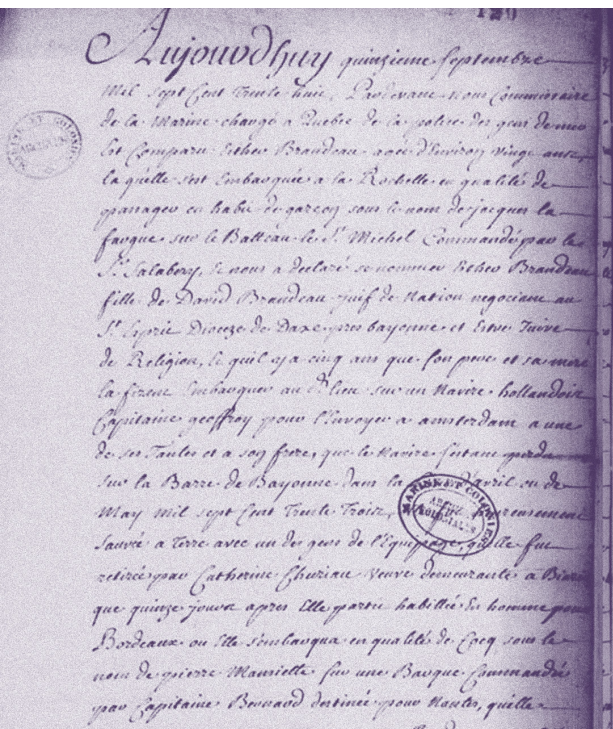 120
Aujourdhuy quinzieme septembre
Mil sept Cent Trente huit, Pardevant nous Commissaire
de la Marine chargé a Quebec de la police des gens de mer
Est Comparu Esther Brandeau agée d'Environ vingt ans
la quelle s'est Embarquée a la Rochelle en qualité de
passager en habit de garçon sous le nom de jacques la
fargue sur le Batteau le St. Michel Commandé par le
Sr. Salabery, Et nous a declaré se nommer Esther Brandeau
fille de David Brandeau juif de Nation negociant au
St. Esprit Dioceze de Daxe pres bayonne et Estre Juive
de Religion, Et quil y a cinq ans que son pere et sa mere
la firent Embarquer au d. lieu sur un Navire hollandois
Capitaine geoffroy pour l'Envoyer a amsterdam a une
de ses Tantes et a son frere, que le Navire s'estant perdu
sur la Barre de Bayonne dans la d'avril ou de
May mil sept Cent Trente Trois,
sauvée a Terre avec un des gens de l'Equipage, qu'elle fut
retirée par Catherine Churiau veuve demeurante a
que quinze jours apres Elle partit habillée En homme pour
Bordeaux ou Elle s'embarqua en qualité de Cocq sous le
nom de pierre Mausiette sur une Barque Commandée
par Capitaine Bernard destinée pour Nantes, qu'elle
MARINE ET COLONIES
ARCHIVES COLONIALES